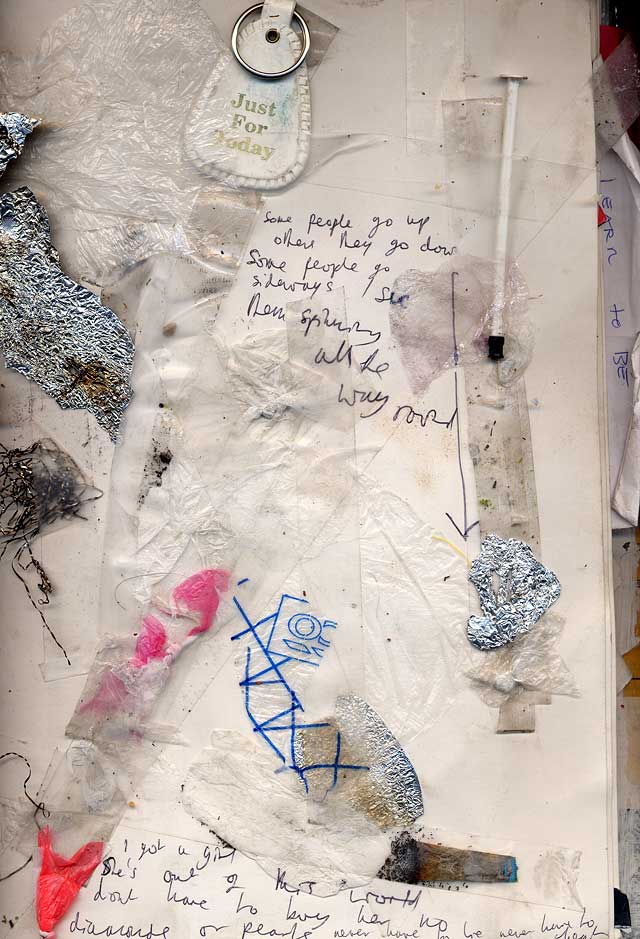 Just
For
Today
Some people go up
others they go down
Some people go
sideways I see
them spinning
all the
way round
LEARN to BE
I got a girl
She's out of this world
dont have to buy her no
diamonds or pearls never have to lie never have to cheat